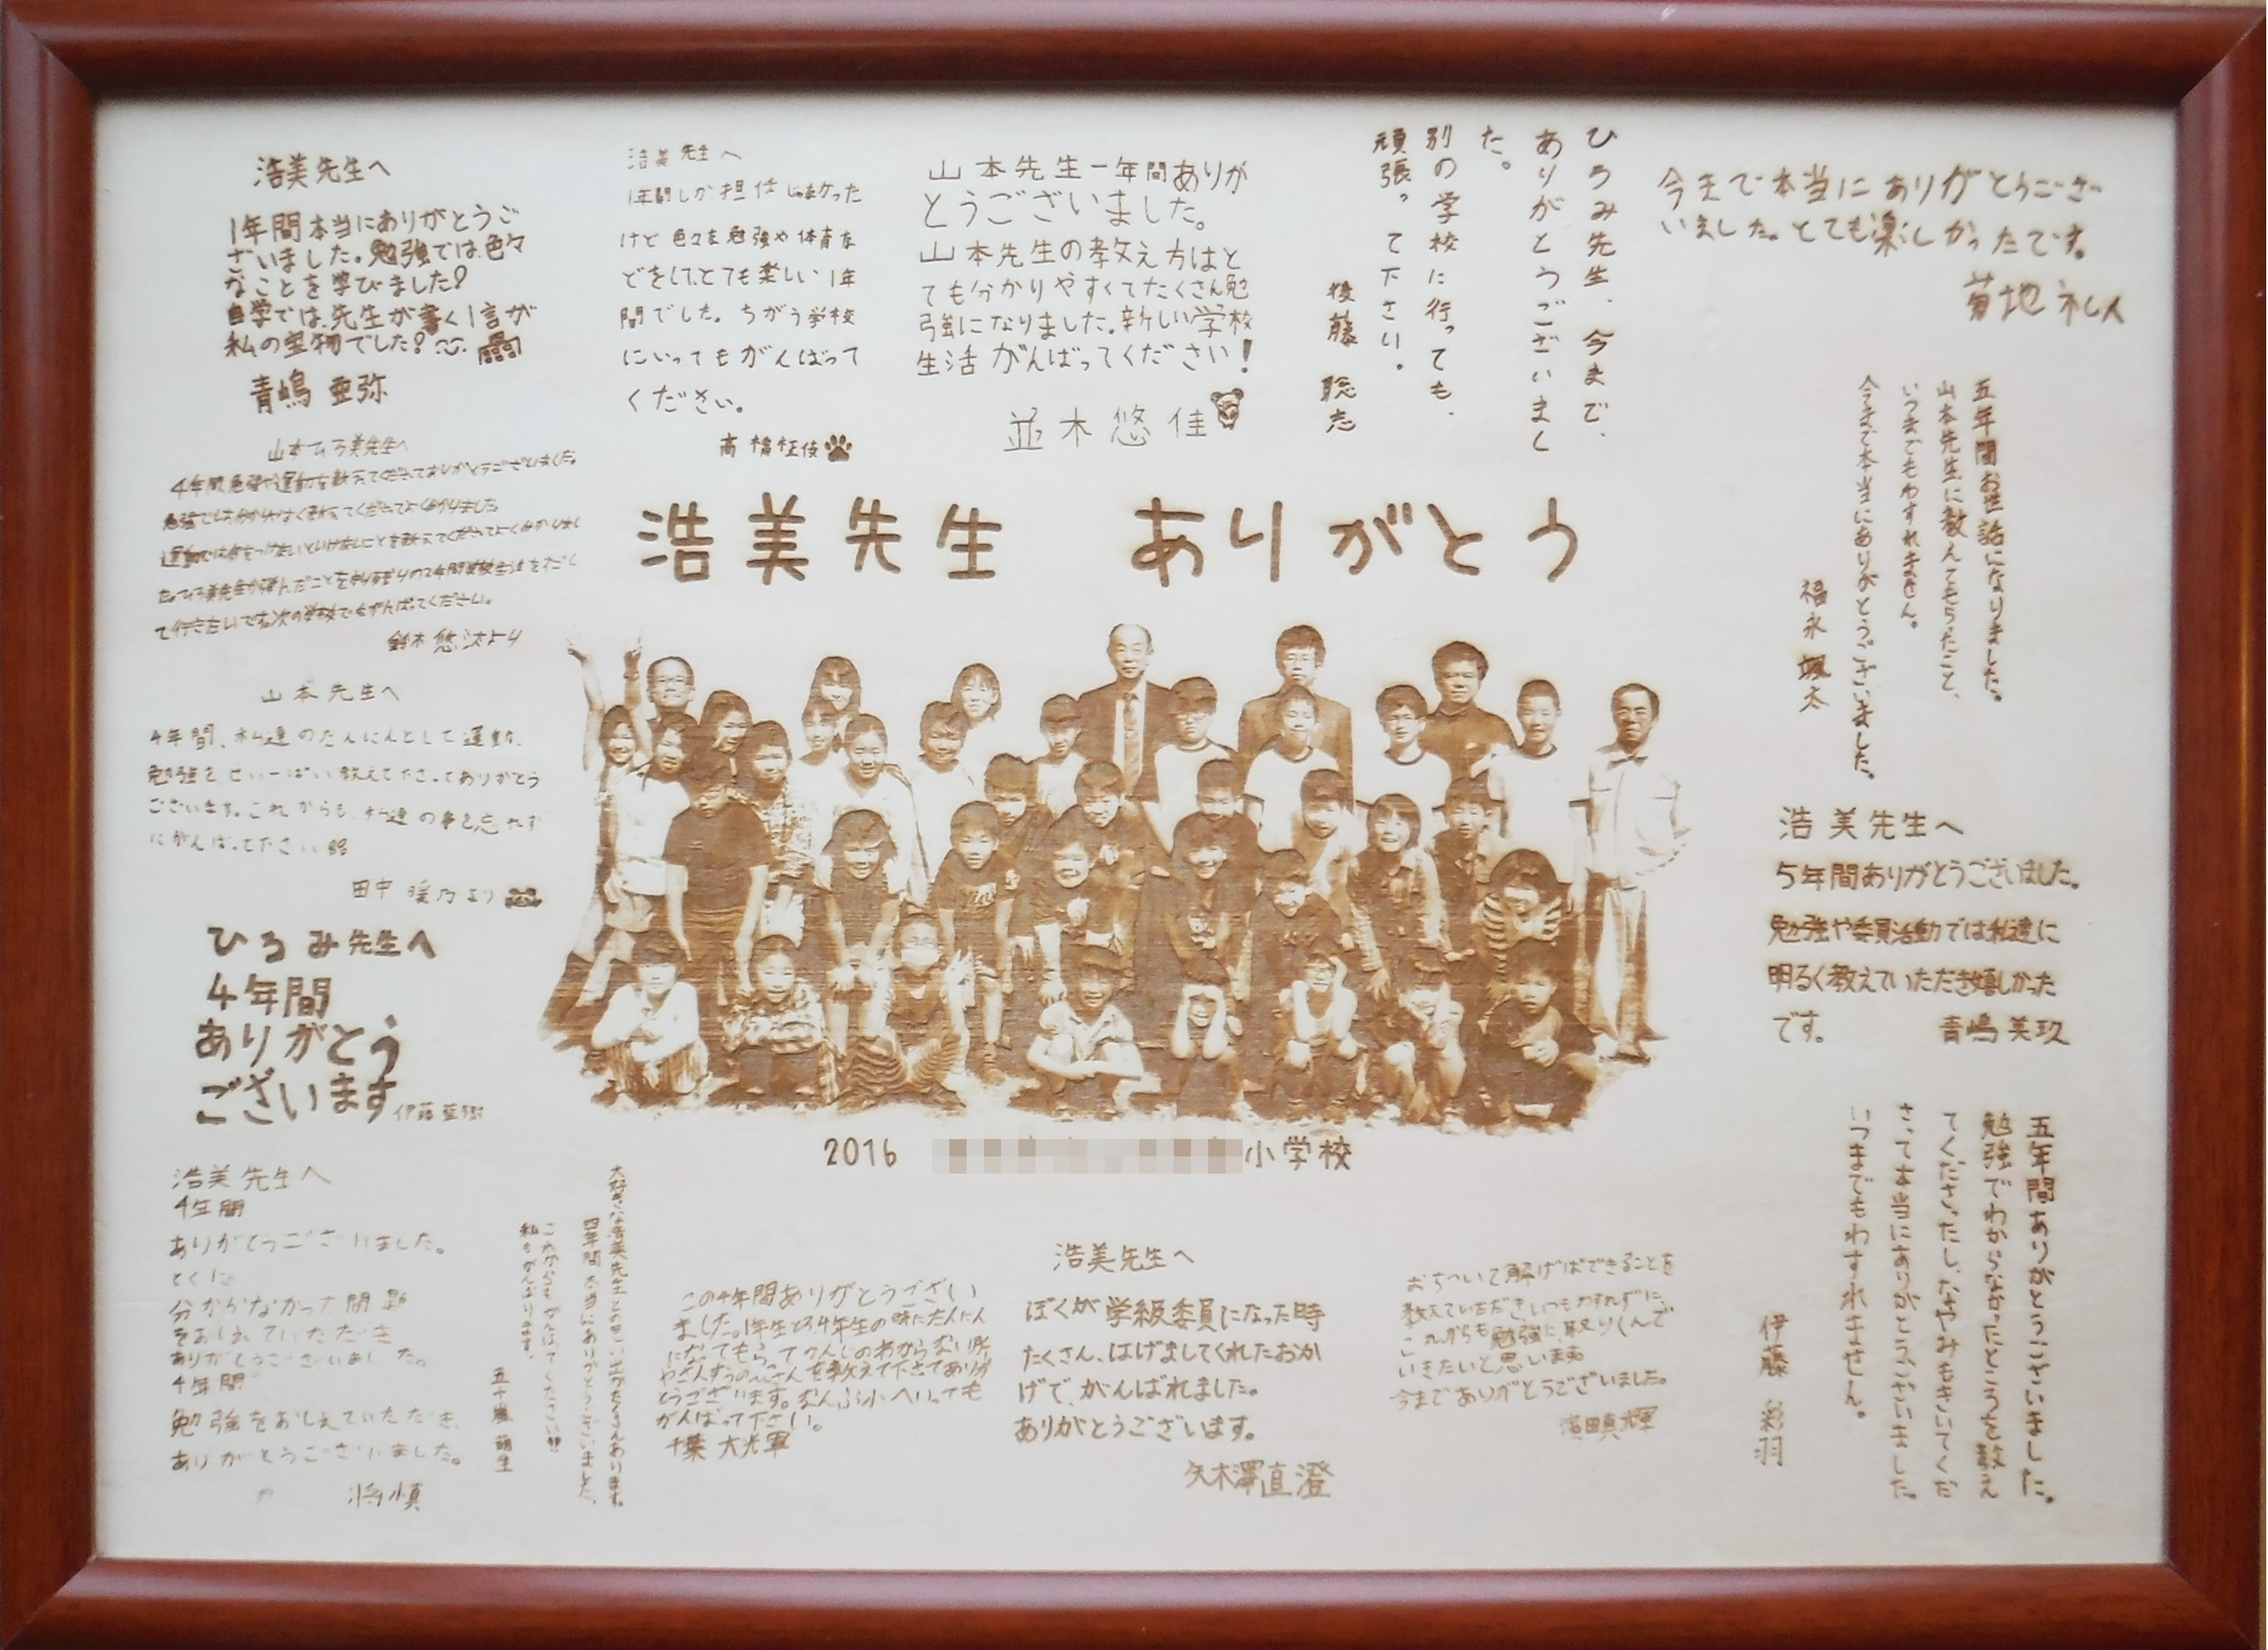 浩美先生へ
1年間本当にありがとうご
ざいました。勉強では色々
なことを学びました！
自学では、先生が書く1言が
私の宝物でした！
青嶋 亜弥
浩美先生へ
1年間しか担任じゃなかった
けど色々な勉強や体育な
どをして、とても楽しい1年
間でした。ちがう学校
にいってもがんばって
ください。
山本先生一年間ありが
とうございました。
山本先生の教え方はと
ても分かりやすくてたくさん勉
強になりました。新しい学校
生活がんばってください!
並木悠佳
ひろみ先生、今まで、
ありがとうございまし
た。
別の学校に行っても、
頑張って下さい。
後藤 聡志
今まで本当にありがとうござ
いました。とても楽しかったです。
菊地 礼人
山本ひろ美先生へ
4年間勉強や運動を教えてくださってありがとうございました。
鈴木 悠汰より
浩美先生 ありがとう
五年間お世話になりました。
山本先生に教えてもらったこと、
いつまでもわすれません。
今まで本当にありがとうございました。
福永 颯太
山本先生へ
4年間、私達のたんにんとして運動、
勉強をせいいっぱい教えて下さってありがとう
ございます。これからも、私達の事を忘れず
にがんばって下さい
田中 暖乃より
浩美先生へ
5年間ありがとうございました。
勉強や委員活動では私達に
明るく教えていただき嬉しかった
です。 青嶋 美玖
ひろみ先生へ
4年間
ありがとう
ございます
2016 小学校
浩美先生へ
4年間
ありがとうございました。
とくに
分からなかった問題
をおしえていただき
ありがとうございました。
4年間
勉強をおしえていただき、
ありがとうございました。
将慎
大好きな浩美先生との思い出がたくさんあります。
四年間本当にありがとうございました。
これからもがんばってください!!
私もがんばります。
五十嵐 萌生
この4年間ありがとうござい
ました。1年生と3、4年生の時にたんにん
になってもらってかんじのわからない所
やさんすうのけいさんを教えて下さてありが
とうございます。なんぶ小へいっても
がんばって下さい。
千葉 大輝
浩美先生へ
ぼくが学級委員になった時
たくさん、はげましてくれたおか
げで、がんばれました。
ありがとうございます。
矢木澤直澄
おちついて解けばできることを
教えていただき、いつもわすれずに、
これからも勉強に取りくんで
いきたいと思います。
今までありがとうございました。
濱田真輝
五年間ありがとうございました。
勉強でわからなかったところを教え
てくださったし、なやみもきいてくだ
さって本当にありがとうございました。
いつまでもわすれません。
伊藤 彩羽